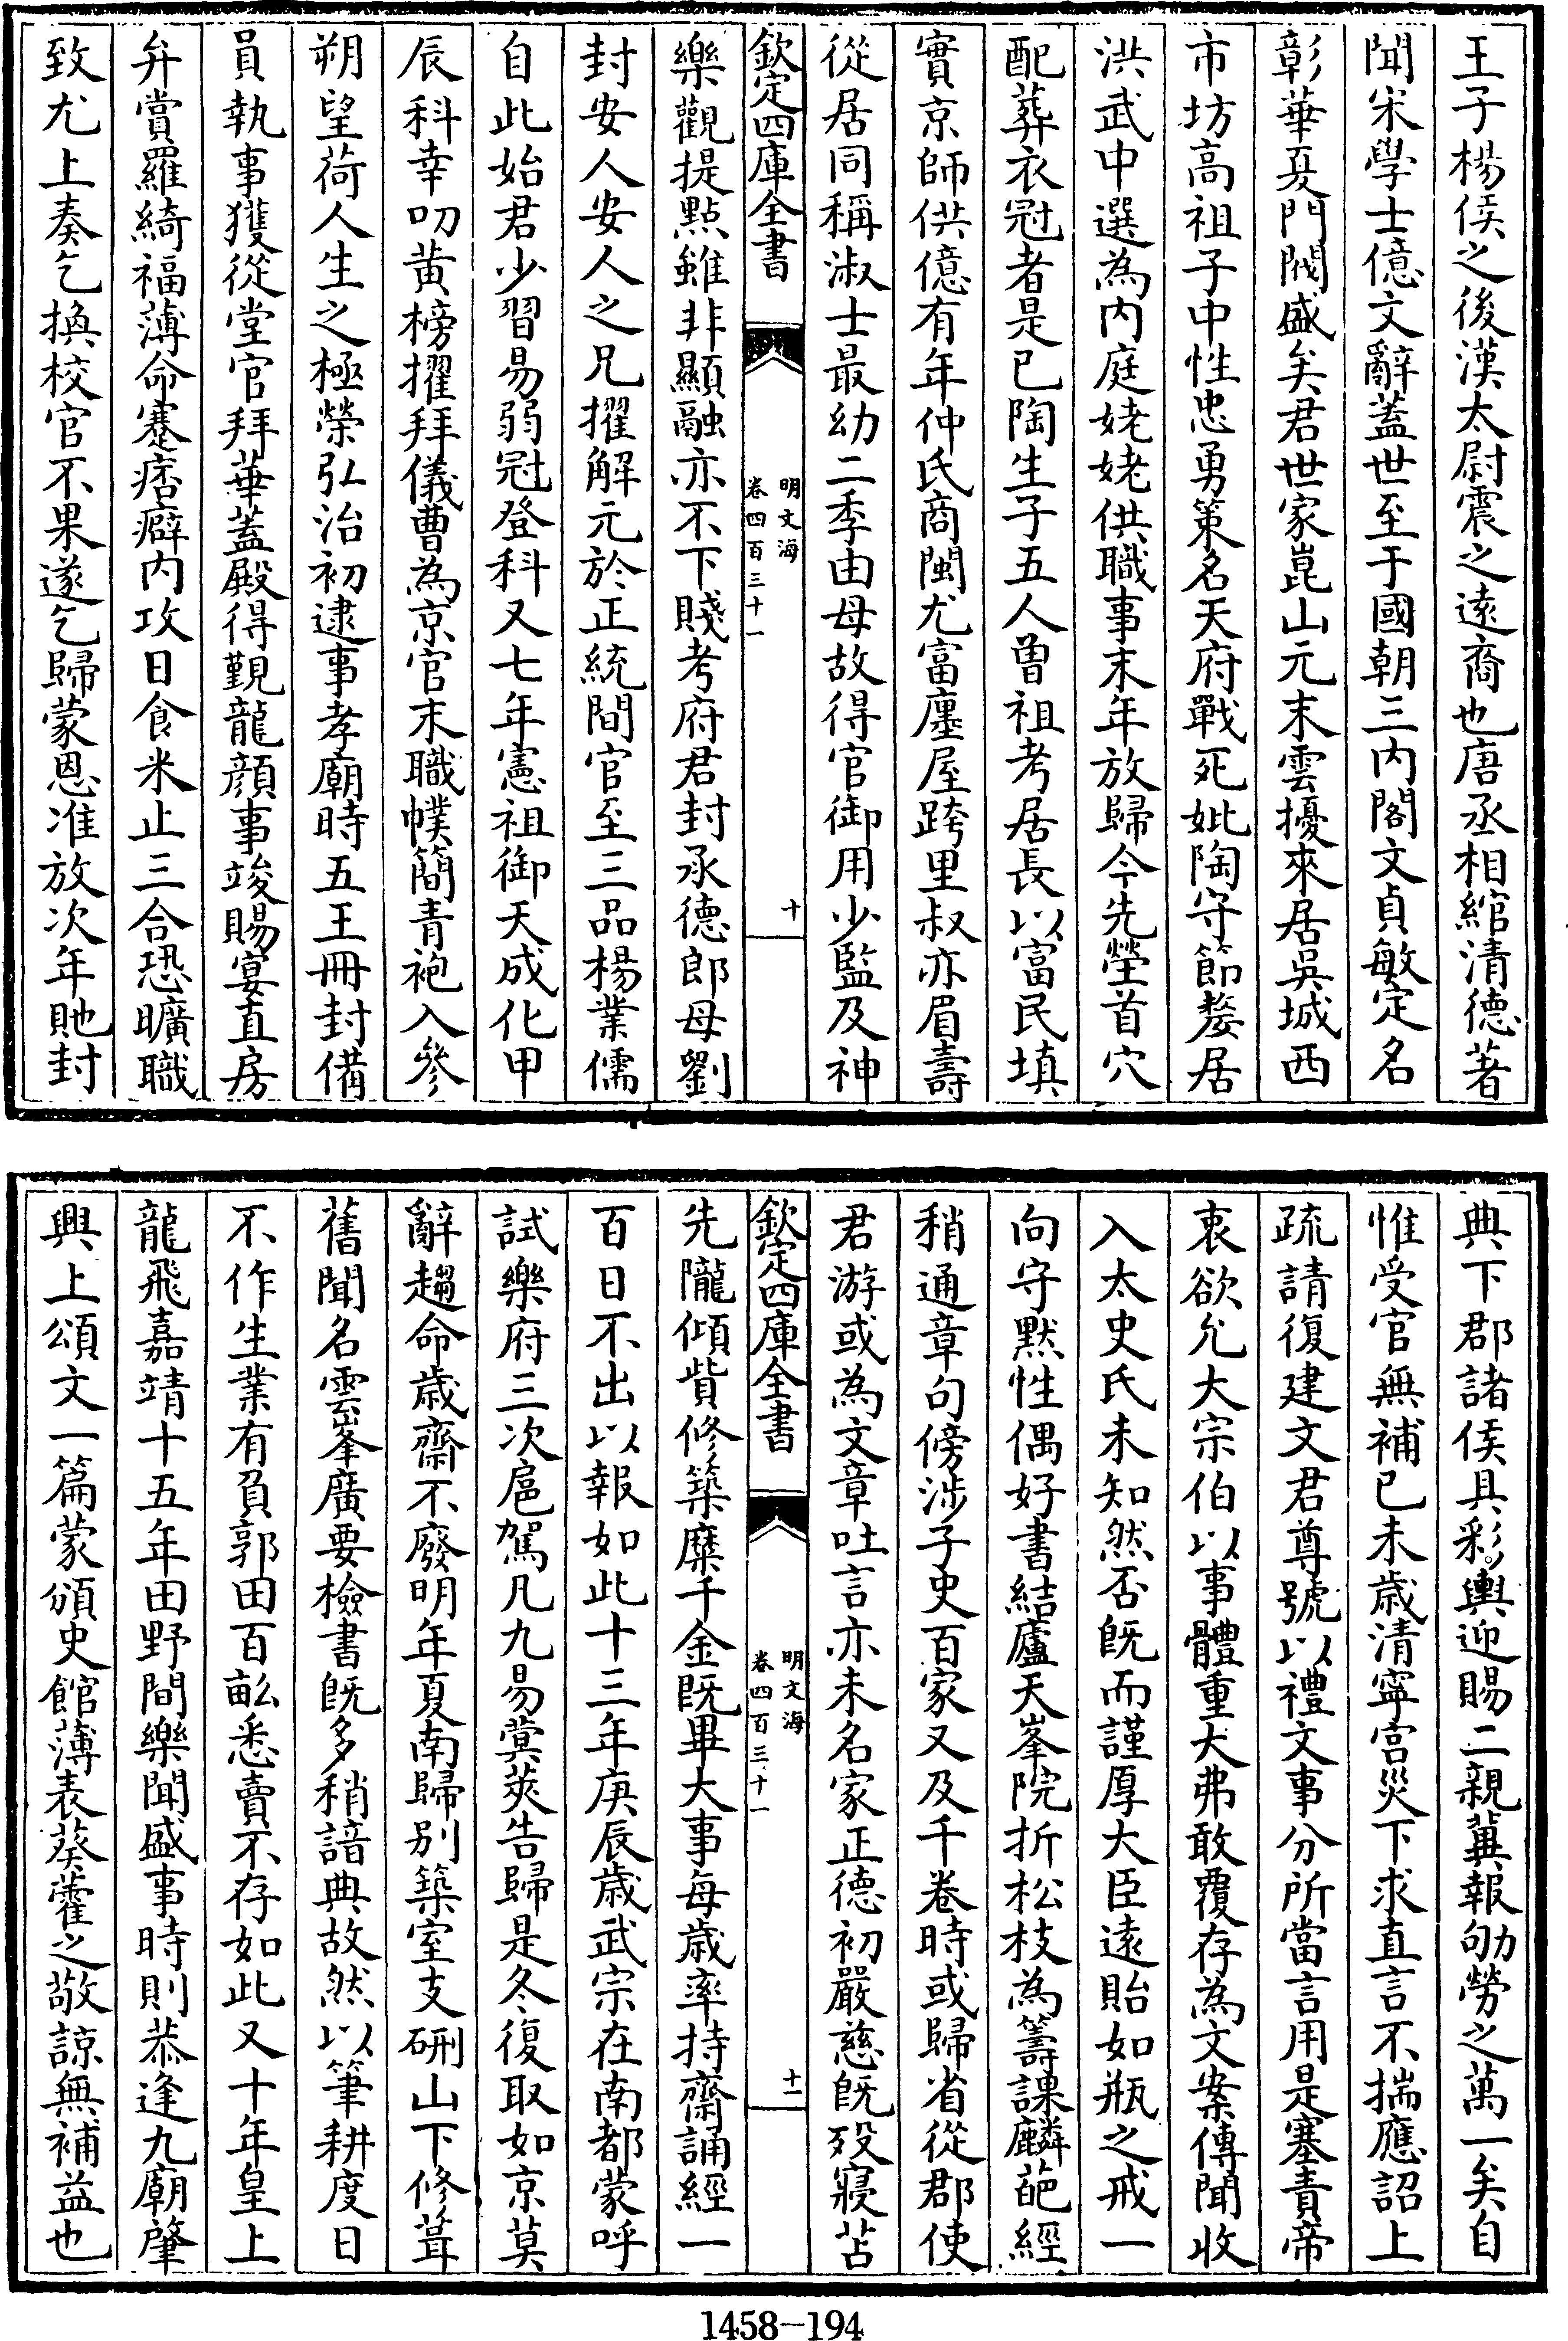 王子楊侯之後漢太尉震之逺裔也唐丞相綰清德著
聞宋學士億文辭蓋世至于國朝三内閣文貞敏定名
彰華夏門閥盛矣君世家崑山元末雲擾來居吳城西
市坊高祖子中性忠勇策名天府戰死妣陶守節嫠居
洪武中選為内庭姥姥供職事末年放歸今先塋首穴
配葬衣冠者是已陶生子五人曽祖考居長以富民填
實京師供億有年仲氏商閩尤富廛屋跨里叔亦眉壽
從居同稱淑士最幼二季由母故得官御用少監及神
欽定四庫全書
明文海
卷四百三十一
十
樂觀提點雖非顯融亦不下賤考府君封承德郎母劉
封安人安人之兄擢解元於正統間官至三品楊業儒
自此始君少習易弱冠登科又七年憲祖御天成化甲
辰科幸叨黄榜擢拜儀曹為京官末職幞簡青袍入參
朔望荷人生之極榮弘治初逮事孝廟時五王冊封備
員執事獲從堂官拜華蓋殿得覲龍顔事竣賜宴直房
弁賞羅綺福薄命蹇痞癖内攻日食米止三合恐曠職
致尤上奏乞換校官不果遂乞歸蒙恩准放次年貤封
典下郡諸侯具彩輿迎賜二親冀報劬勞之萬一矣自
惟受官無補已未歳清寧宫災下求直言不揣應詔上
疏請復建文君尊號以禮文事分所當言用是塞責帝
衷欲允大宗伯以事體重大弗敢覆存為文案傳聞收
入太史氏未知然否既而謹厚大臣遠貽如瓶之戒一
向守黙性偶好書結廬天峯院折松枝為籌課麟葩經
稍通章句傍涉子史百家又及千卷時或歸省從郡使
君游或為文章吐言亦未名家正德初嚴慈既殁寢苫
欽定四庫全書
明文海
卷四百三十一
十一
先隴傾貲修築糜千金既畢大事每歳率持齋誦經一
百日不出以報如此十三年庚辰歳武宗在南都蒙呼
試樂府三次扈駕凡九易蓂莢告歸是冬復取如京莫
辭趨命歳齋不廢明年夏南歸别築室支硎山下修葺
舊聞名雲峯廣要檢書既多稍諳典故然以筆耕度日
不作生業有負郭田百畝悉賣不存如此又十年皇上
龍飛嘉靖十五年田野間樂聞盛事時則恭逢九廟肇
興上頌文一篇蒙頒史館薄表葵藿之敬諒無補益也
1458-194